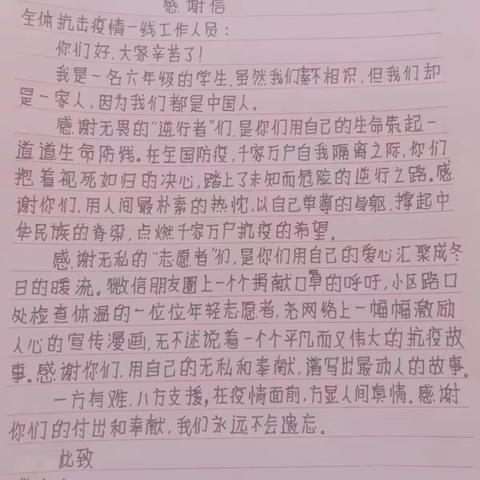 感谢信
全体抗击疫情一线工作人员：
你们好，大家辛苦了！
我是一名六年级的学生，虽然我们素不相识，但我们却
是一家人，因为我们都是中国人。
感谢无畏的“逆行者”们，是你们用自己的生命筑起一
道道生命防线。在全国防疫，千家万户自我隔离之际，你们
抱着视死如归的决心，踏上了未知而危险的逆行之路。感
谢你们，用人间最朴素的热忱，以自己单薄的身躯，撑起中
华民族的脊梁，点燃千家万户抗疫的希望。
感谢无私的“志愿者”们，是你们用自己的爱心汇聚成冬
日的暖流。微信朋友圈上一个个捐献口罩的呼吁，小区路口
处检查体温的一位位年轻志愿者，网络上一幅幅激励
人心的宣传漫画，无不述说着一个个平凡而又伟大的抗疫故
事。感谢你们，用自己的无私和奉献，谱写出最动人的故事。
一方有难，八方支援，在疫情面前，方显人间真情。感谢
你们的付出和奉献，我们永远不会遗忘。
此致